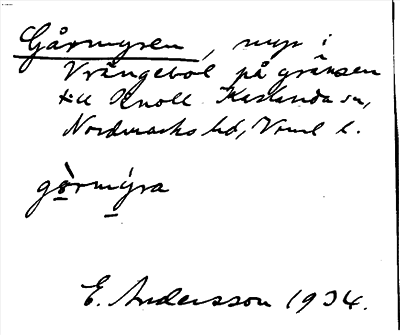 Gårmyren, myr i
Vrängebol på gränsen
till Knoll Karlanda sn,
Nordmarks hd, Vrml l.
gò̠rmýra
E. Andersson 1934.